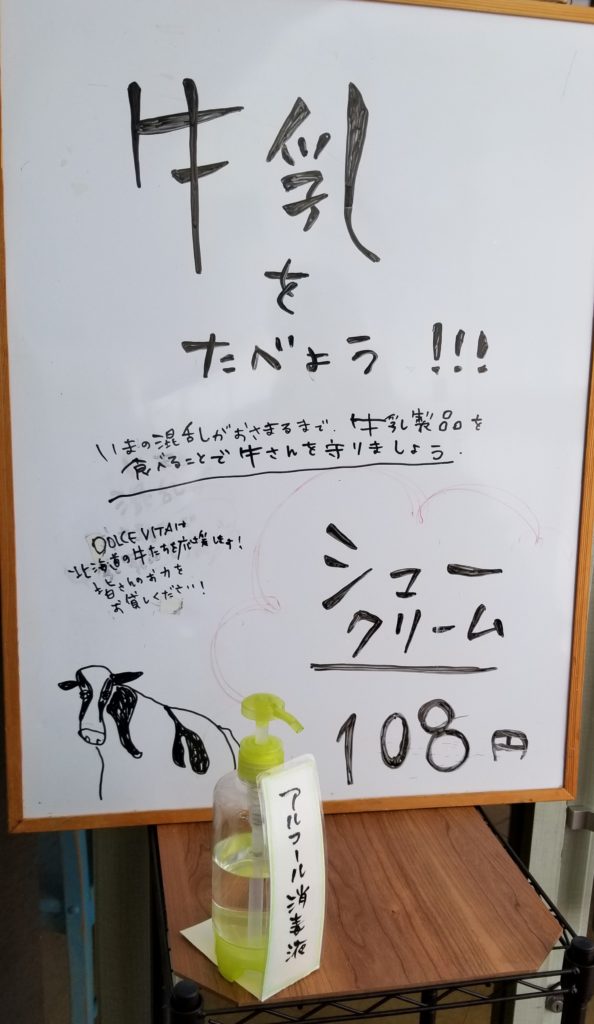 牛乳
を
たべよう!!!
いまの混乱がおさまるまで、牛乳製品を
食べることで牛さんを守りましょう。
DOLCE VITAは
北海道の牛たちを応援します!
皆さんのお力を
お貸しください!
シュー
クリーム
108円
アルコール消毒液